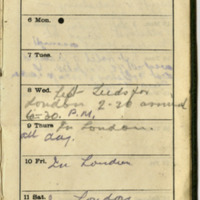 6 Mon.
7 Tues.
8 Wed. Left Leeds for
London 2-20 arrived
6-30. P.M.
9 Thurs In London.
all day.
10 Fri. In London
11 Sat. London